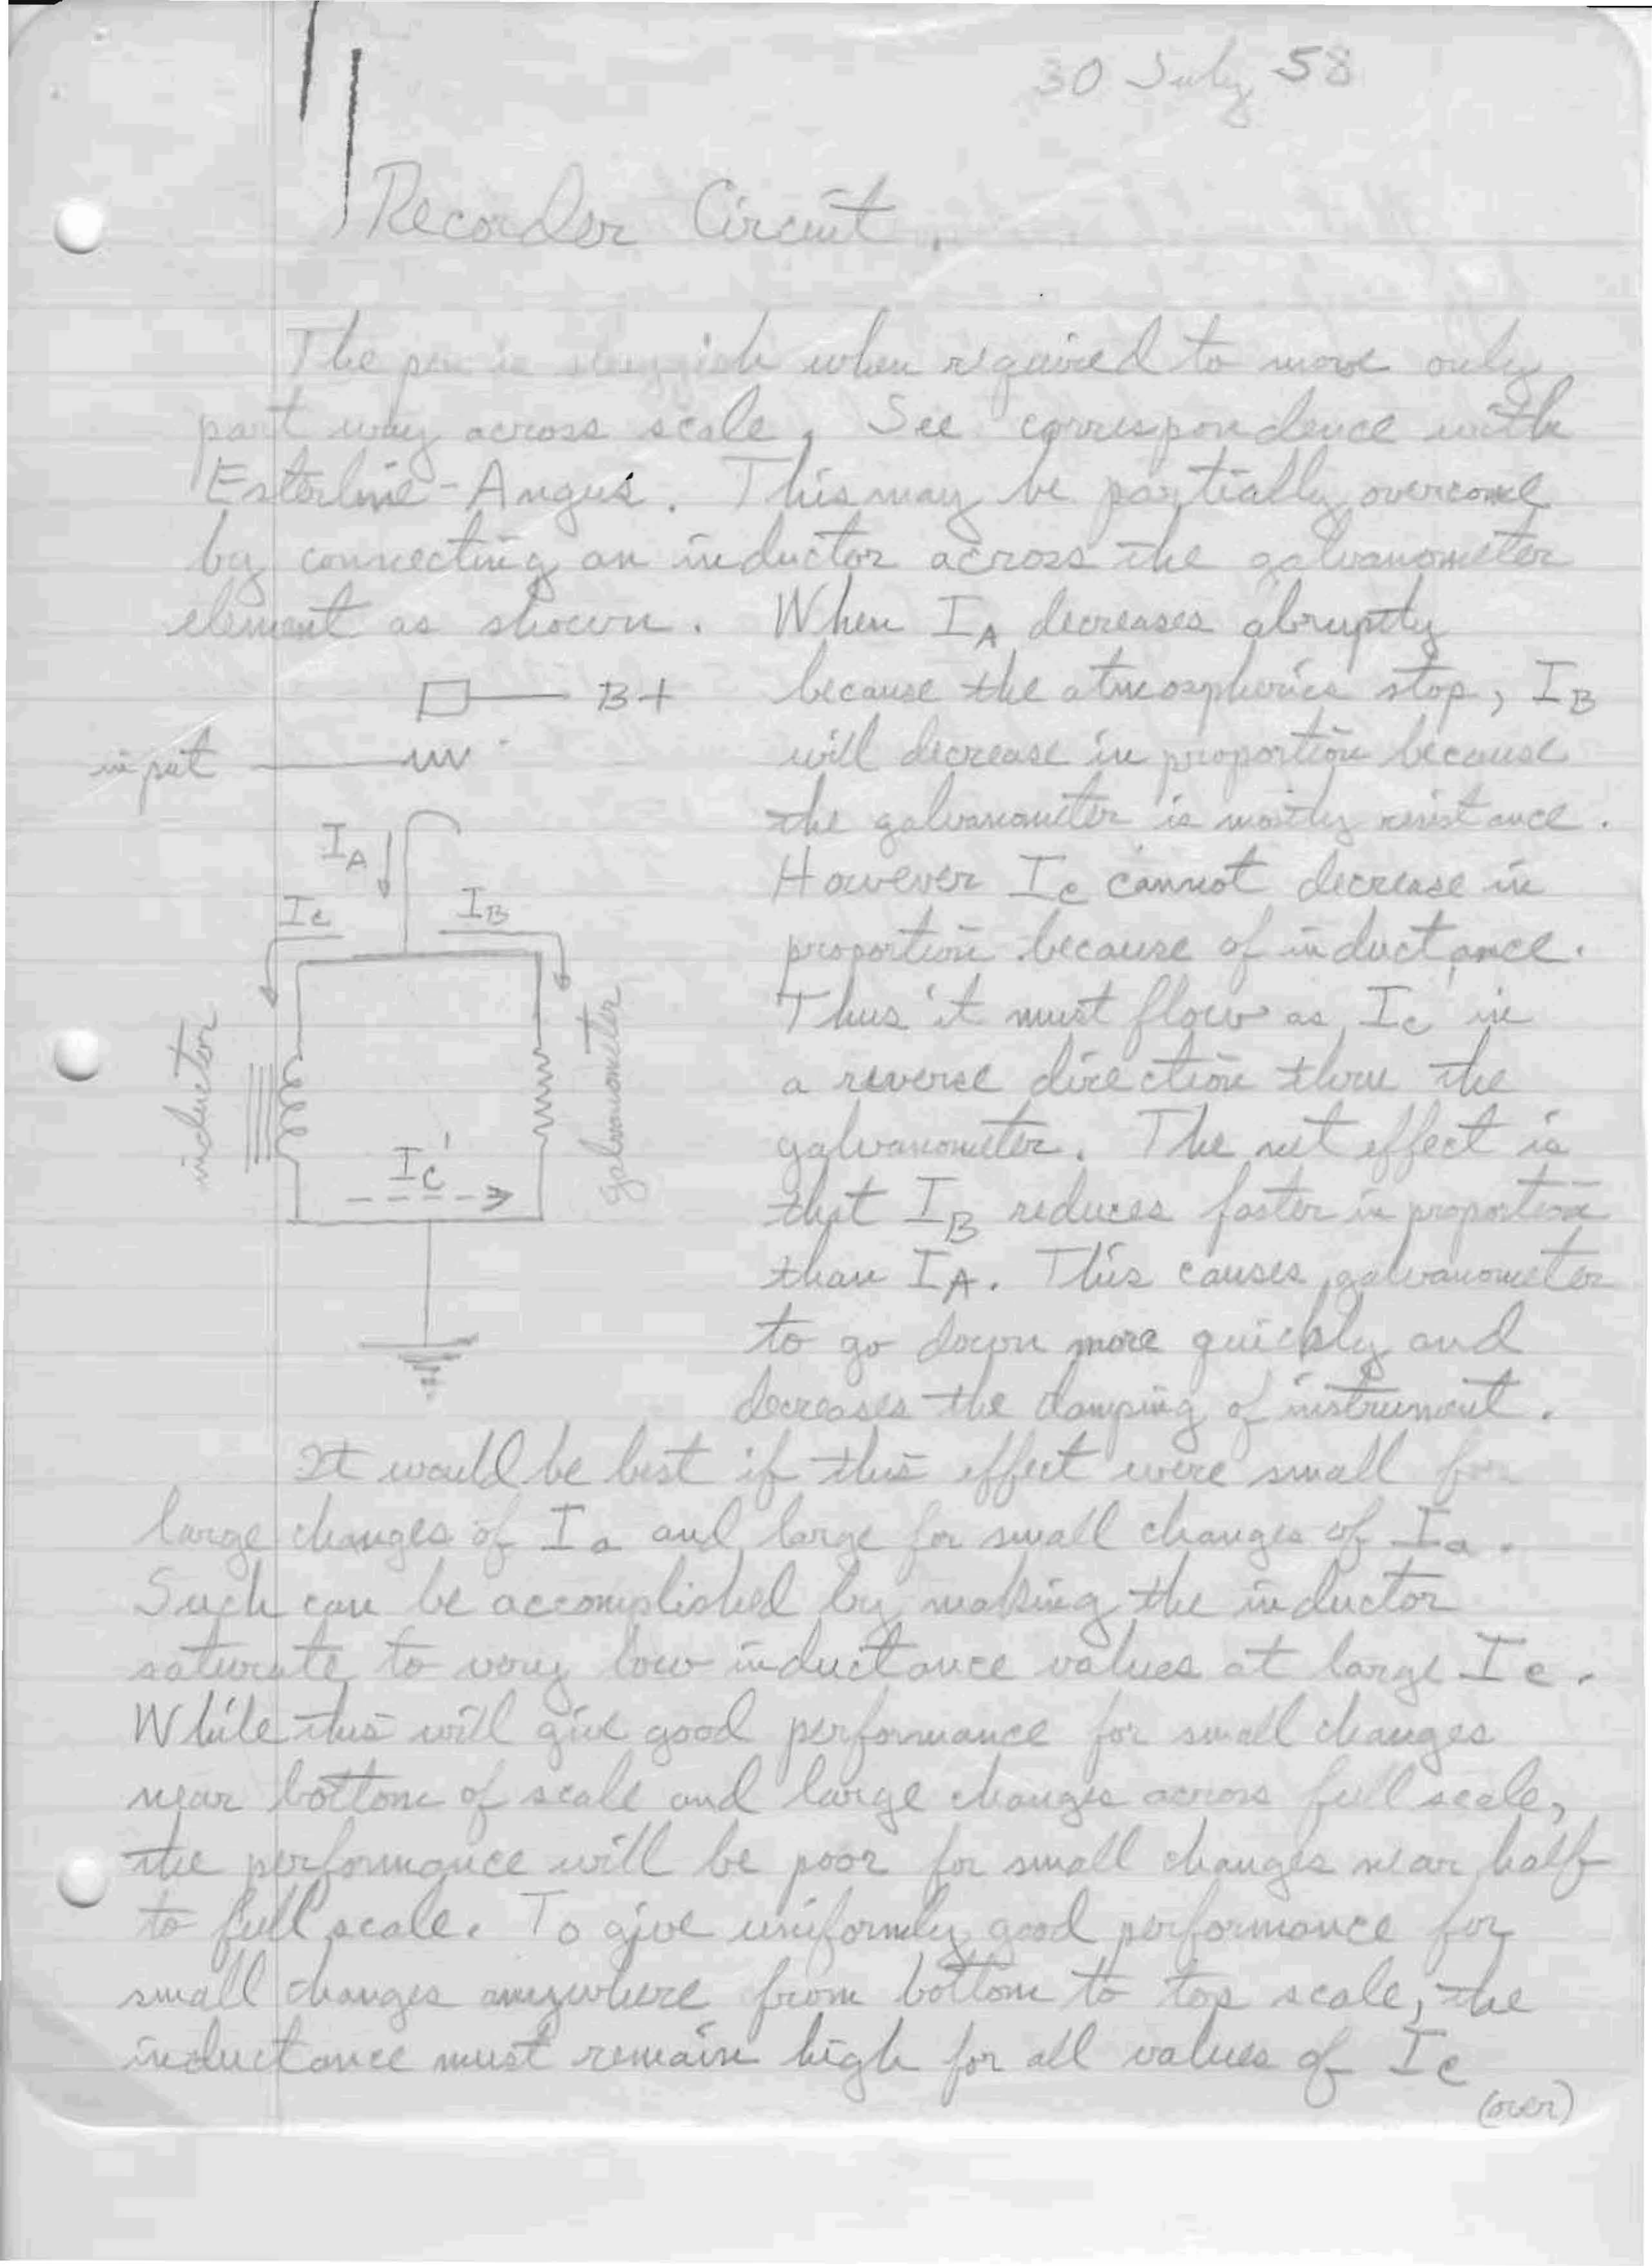 30 July 58
Recorder Circuit.
The pen is sluggish when required to move only
part way across scale. See correspondence with
Esterline-Angus. This may be partially overcome
by connecting an inductor across the galvanometer
element as shown. When I_A decreases abruptly
B+
because the atmospherics stop, I_B
input
will decrease in proportion because
the galvanometer is mostly resistance.
I_A
However I_C cannot decrease in
I_C
I_B
proportion because of inductance.
Thus it must flow as I_C' in
a reverse direction thru the
inductor
galvanometer
galvanometer. The net effect is
I_C'
that I_B reduces faster in proportion
than I_A. This causes galvanometer
to go down more quickly and
decreases the damping of instrument.
It would be best if this effect were small for
large changes of I_a and large for small changes of I_a.
Such can be accomplished by making the inductor
saturate to very low inductance values at large I_c.
While this will give good performance for small changes
near bottom of scale and large changes across full scale,
the performance will be poor for small changes near half
to full scale. To give uniformly good performance for
small changes anywhere from bottom to top scale, the
inductance must remain high for all values of I_c
(over)